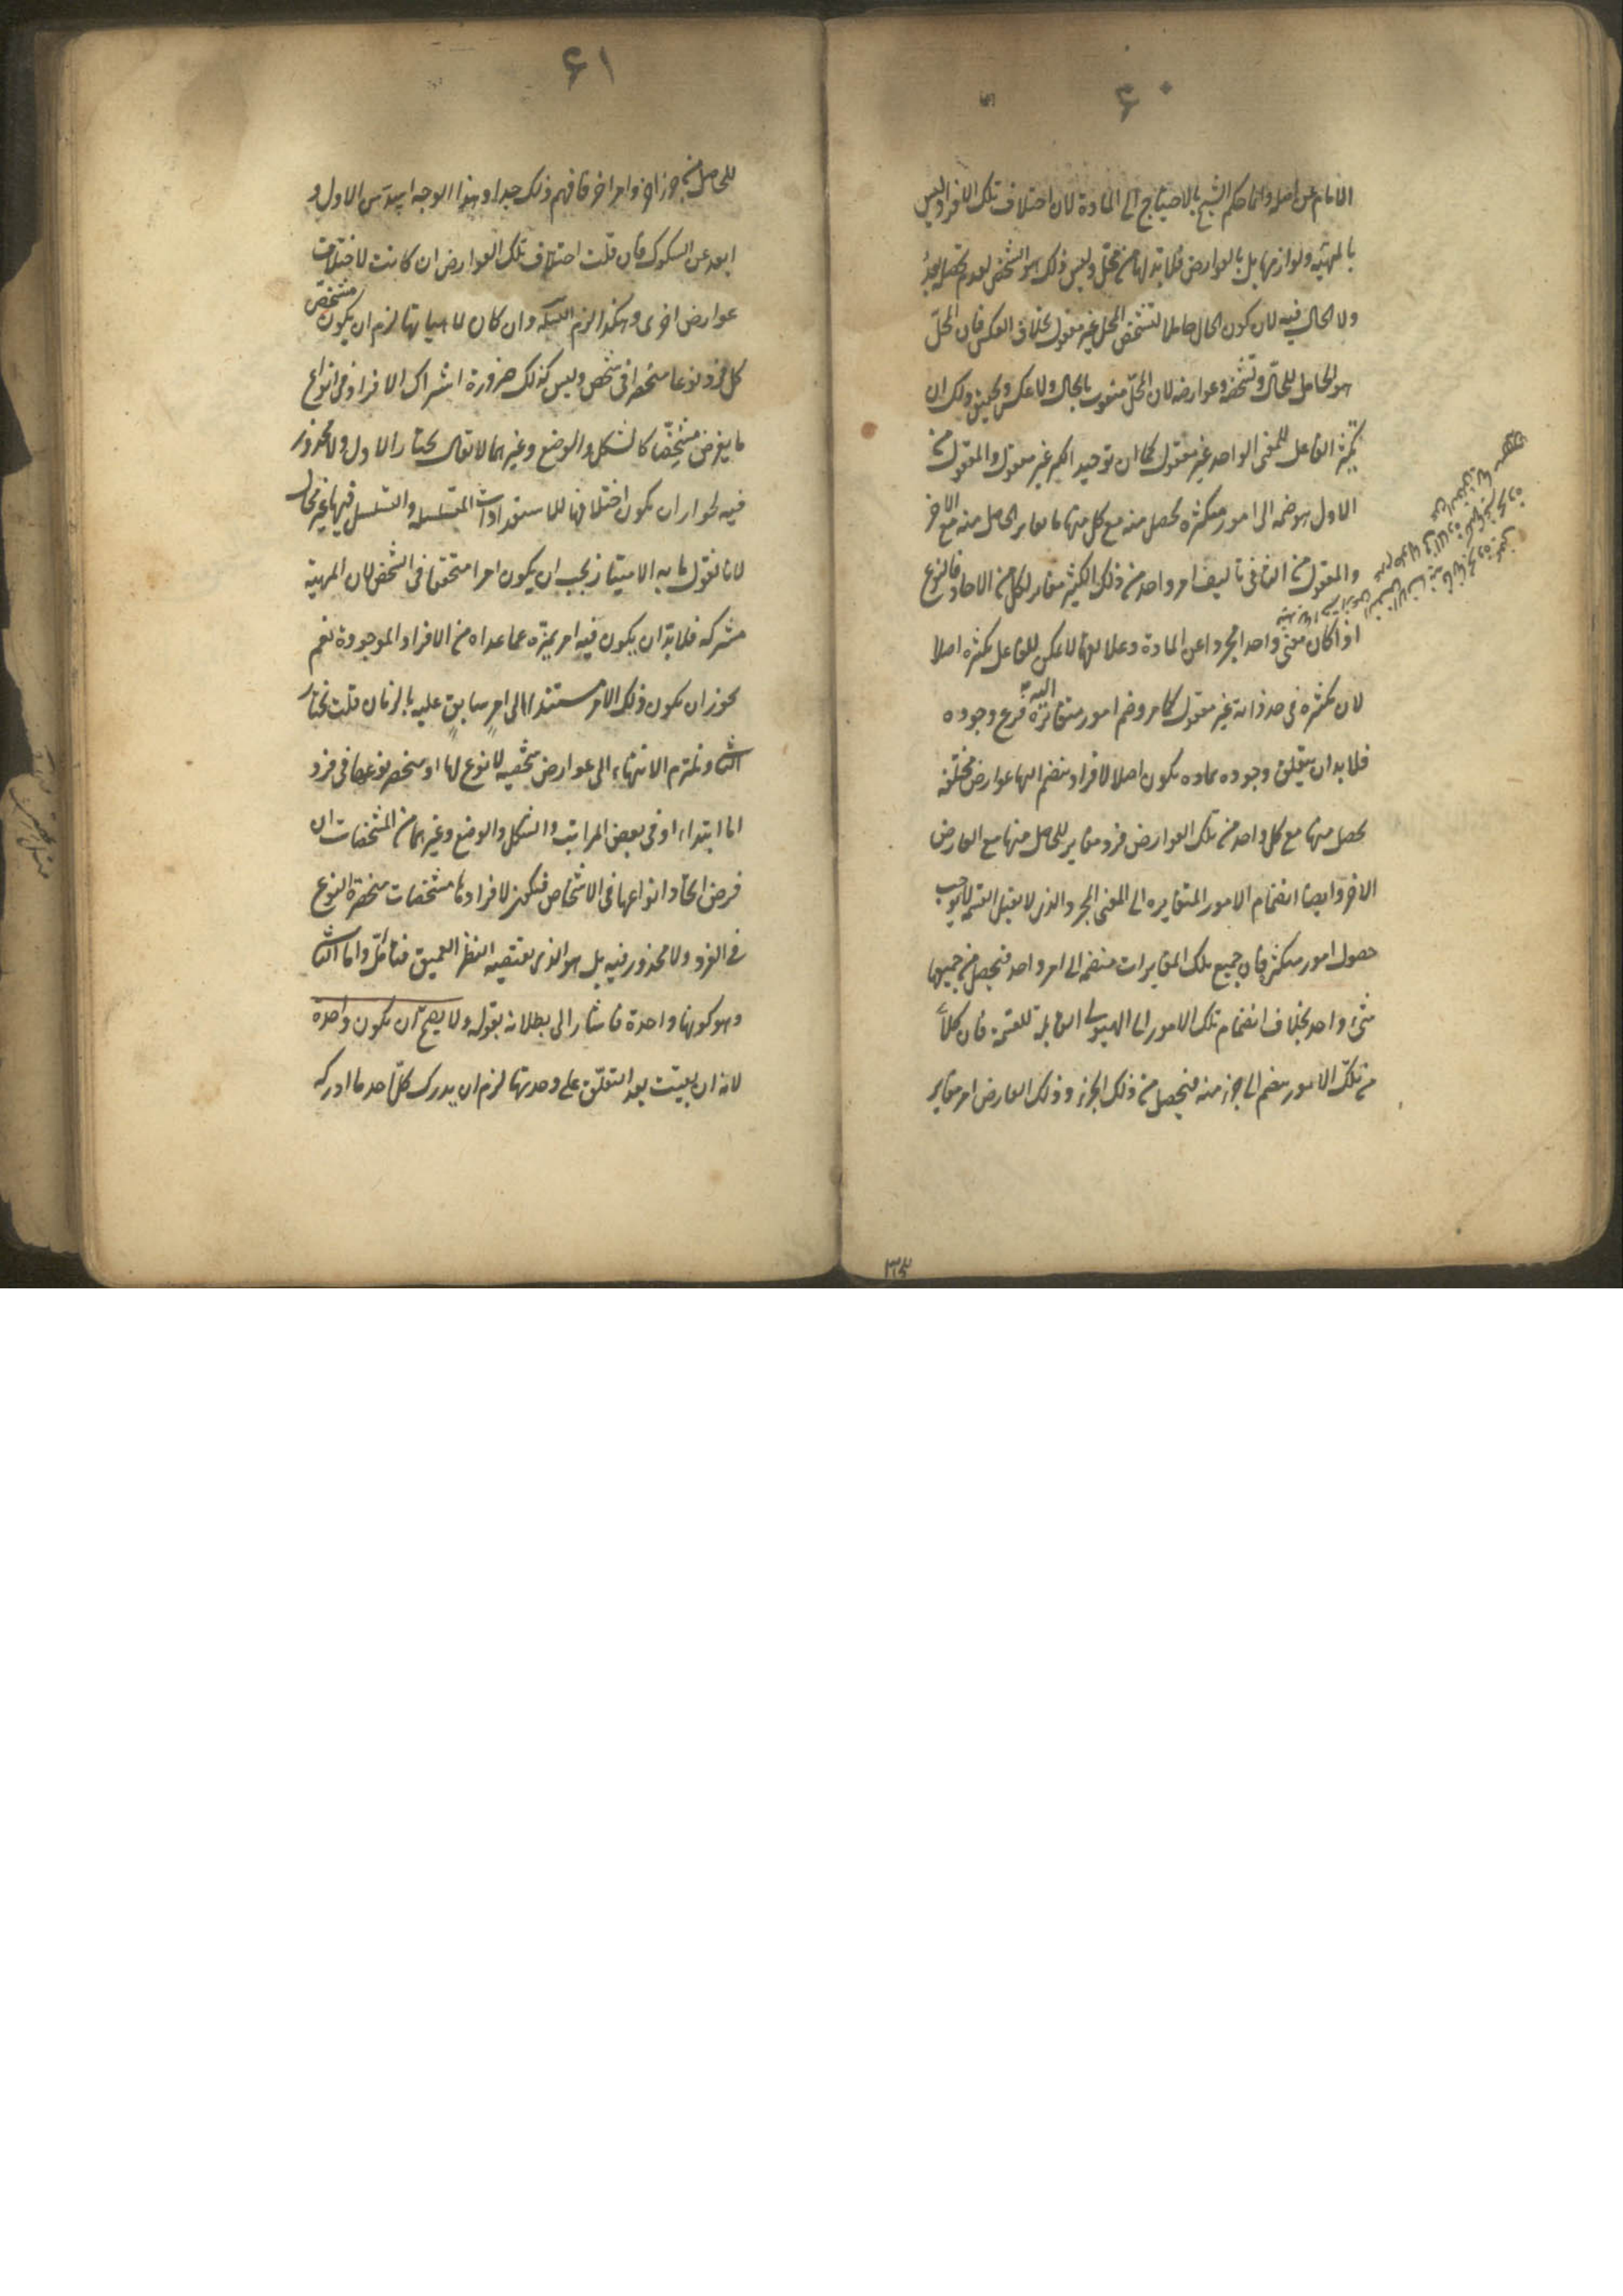 ۶۰
الامام عن اصله وانما حكم الشيخ بالاحتياج الى المادة لان اختلاف تلك الافراد ليس
بالمهية ولوازمها بل بالعوارض فلابد لها من محل وليس ذلك هو الشخص لعدم تحصله بعدُ
ولا الحال فيه لان كون الحال حاملا لتشخص المحل غير معقول بخلاف العكس فان المحلّ
هو الحامل للحالّ وتشخصه وعوارضه لان المحلّ منعوت بالحال ولا عكس وتحقيق ذلك ان
تكثر الفاعل للمعنى الواحد غير معقول كما ان توحيد الكثير غير معقول والمعقول من
الاول هو ضمه الى امور متكثره يحصل منه مع كل منها ما يغاير الحاصل منه مع الاخر
والمعقول من الثانى تاليف امر واحد من ذلك الكثير مغاير لكل من الاحاد فالنوع
اذا كان معنى واحدا مجردا عن المادة وعلايقها لا يمكن للفاعل تكثره اصلا
لان تكثره فى حد ذاته غير معقول كما مر وضم امور متغايرة اليه فرع وجوده
فلابد ان يتعلق وجوده بماده يكون اصلا لافراد ينضم اليها عوارض مختلفه
يحصل منها مع كل واحد من تلك العوارض فرد مغاير للحاصل منها مع العارض
الاخر وايضا انضمام الامور المتغايره الى المعنى المجرد الذى لا يقبل القسمة لا يوجب
حصول امور متكثرة فان جميع تلك المغايرات منضمه الى امر واحد فيحصل من جميعها
شئ واحد بخلاف انضمام تلك الامور الى الهيولى القابلة للقسمة فان كلاً
من تلك الامور ينضم الى جزء منه فيحصل من ذلك الجزء وذلك العارض امر مغاير
۶۱
للحاصل من جزء اخر وامر اخر فافهم ذلك جدا وهذا الوجه اسدّ من الاول و
ابعد عن الشكوك فان قلت اختلاف تلك العوارض ان كانت لاختلاف
عوارض اخرى وهكذا لزم التسلسل وان كان لماهياتها لزم ان يكون مشخص
كل فرد نوعا منحصرا فى شخص وليس كذلك ضرورة اشتراك الافراد فى انواع
ما يفرض مشخصّا كالشكل والوضع وغيرهما لا يقال نختار الاول ولا محذور
فيه لجواز ان يكون اختلافها للاستعدادات المتسلسله والتسلسل فيها غير محال
لانا نقول ما به الامتياز يجب ان يكون امرا متحققا فى الشخص لان المهية
مشتركه فلابد ان يكون فيه امر يميزه عما عداه من الافراد الموجودة نعم
يجوز ان يكون ذلك الامر مستندا الى امرٍ سابقٍ عليه بالزمان قلت نختار
الثانى ونلتزم الانتهاء الى عوارض شخصيه لا نوع لها او منحصر نوعها فى فرد
اما ابتداء او فى بعض المراتب والشكل والوضع وغيرهما من المشخصات ان
فرض اتحاد انواعها فى الاشخاص فيكون لافرادها مشخصات منحصرة النوع
فى الفرد ولا محذور فيه بل هو الذى يقتضيه النظر العميق فتامّل واما الثانى
وهو كونها واحدة فاشار الى بطلانه بقوله ولا يصح ان يكون واحدة
لانه ان بقيت بعد التعلّق على وحدتها لزم ان يدرك كلّ احد ما ادركه